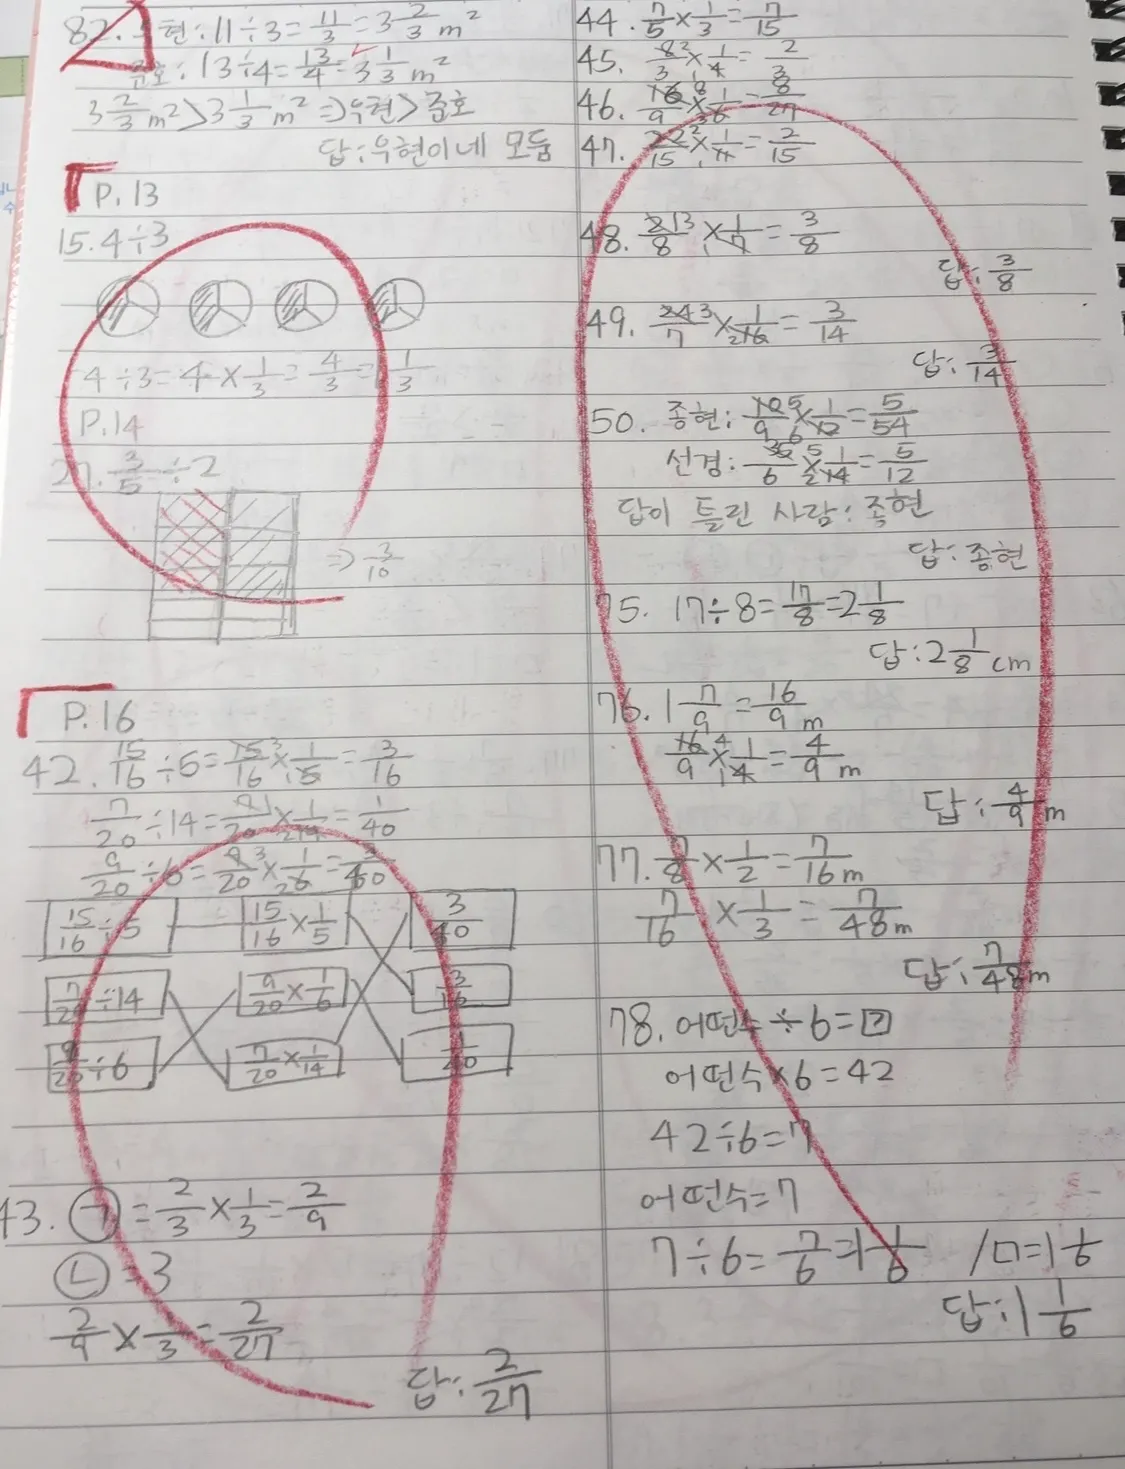 82. 우현 : 11÷3 = 11/3 = 3 2/3 m²
준호 : 13÷4 = 13/4 = 3 1/3 m²
3 2/3 m² > 3 1/3 m² ⇒ 우현 > 준호
답 : 우현이네 모둠
P.13
15. 4÷3
4÷3 = 4 × 1/3 = 4/3 = 1 1/3
P.14
27. 3/5 ÷ 2
⇒ 3/10
P.16
42. 15/16 ÷ 5 = 15/16 3 × 1/5 1 = 3/16
7/20 ÷ 14 = 7/20 1 × 1/14 2 = 1/40
9/20 ÷ 6 = 9/20 3 × 1/6 2 = 3/40
15/16 ÷ 5 15/16 × 1/5 3/40
7/20 ÷ 14 9/20 × 1/6 3/16
9/20 ÷ 6 7/20 × 1/14 1/40
43. ㉠ = 2/3 × 1/3 = 2/9
㉡ = 3
2/9 × 1/3 = 2/27
답 : 2/27
44. 7/5 × 1/3 = 7/15
45. 8/3 2 × 1/4 1 = 2/3
46. 16/9 8 × 1/6 3 = 8/27
47. 22/15 2 × 1/11 1 = 2/15
48. 21/8 3 × 1/7 1 = 3/8
답 : 3/8
49. 24/7 3 × 1/16 2 = 3/14
답 : 3/14
50. 종현 : 10/9 5 × 1/12 6 = 5/54
선경 : 35/6 5 × 1/14 2 = 5/12
답이 틀린 사람 : 종현
답 : 종현
75. 17÷8 = 17/8 = 2 1/8
답 : 2 1/8 cm
76. 1 7/9 = 16/9 m
16/9 4 × 1/4 1 = 4/9 m
답 : 4/9 m
77. 7/8 × 1/2 = 7/16 m
7/16 × 1/3 = 7/48 m
답 : 7/48 m
78. 어떤수 ÷ 6 = ?
어떤수 × 6 = 42
42÷6 = 7
어떤수 = 7
7÷6 = 7/6 = 1 1/6 / □ = 1 1/6
답 : 1 1/6